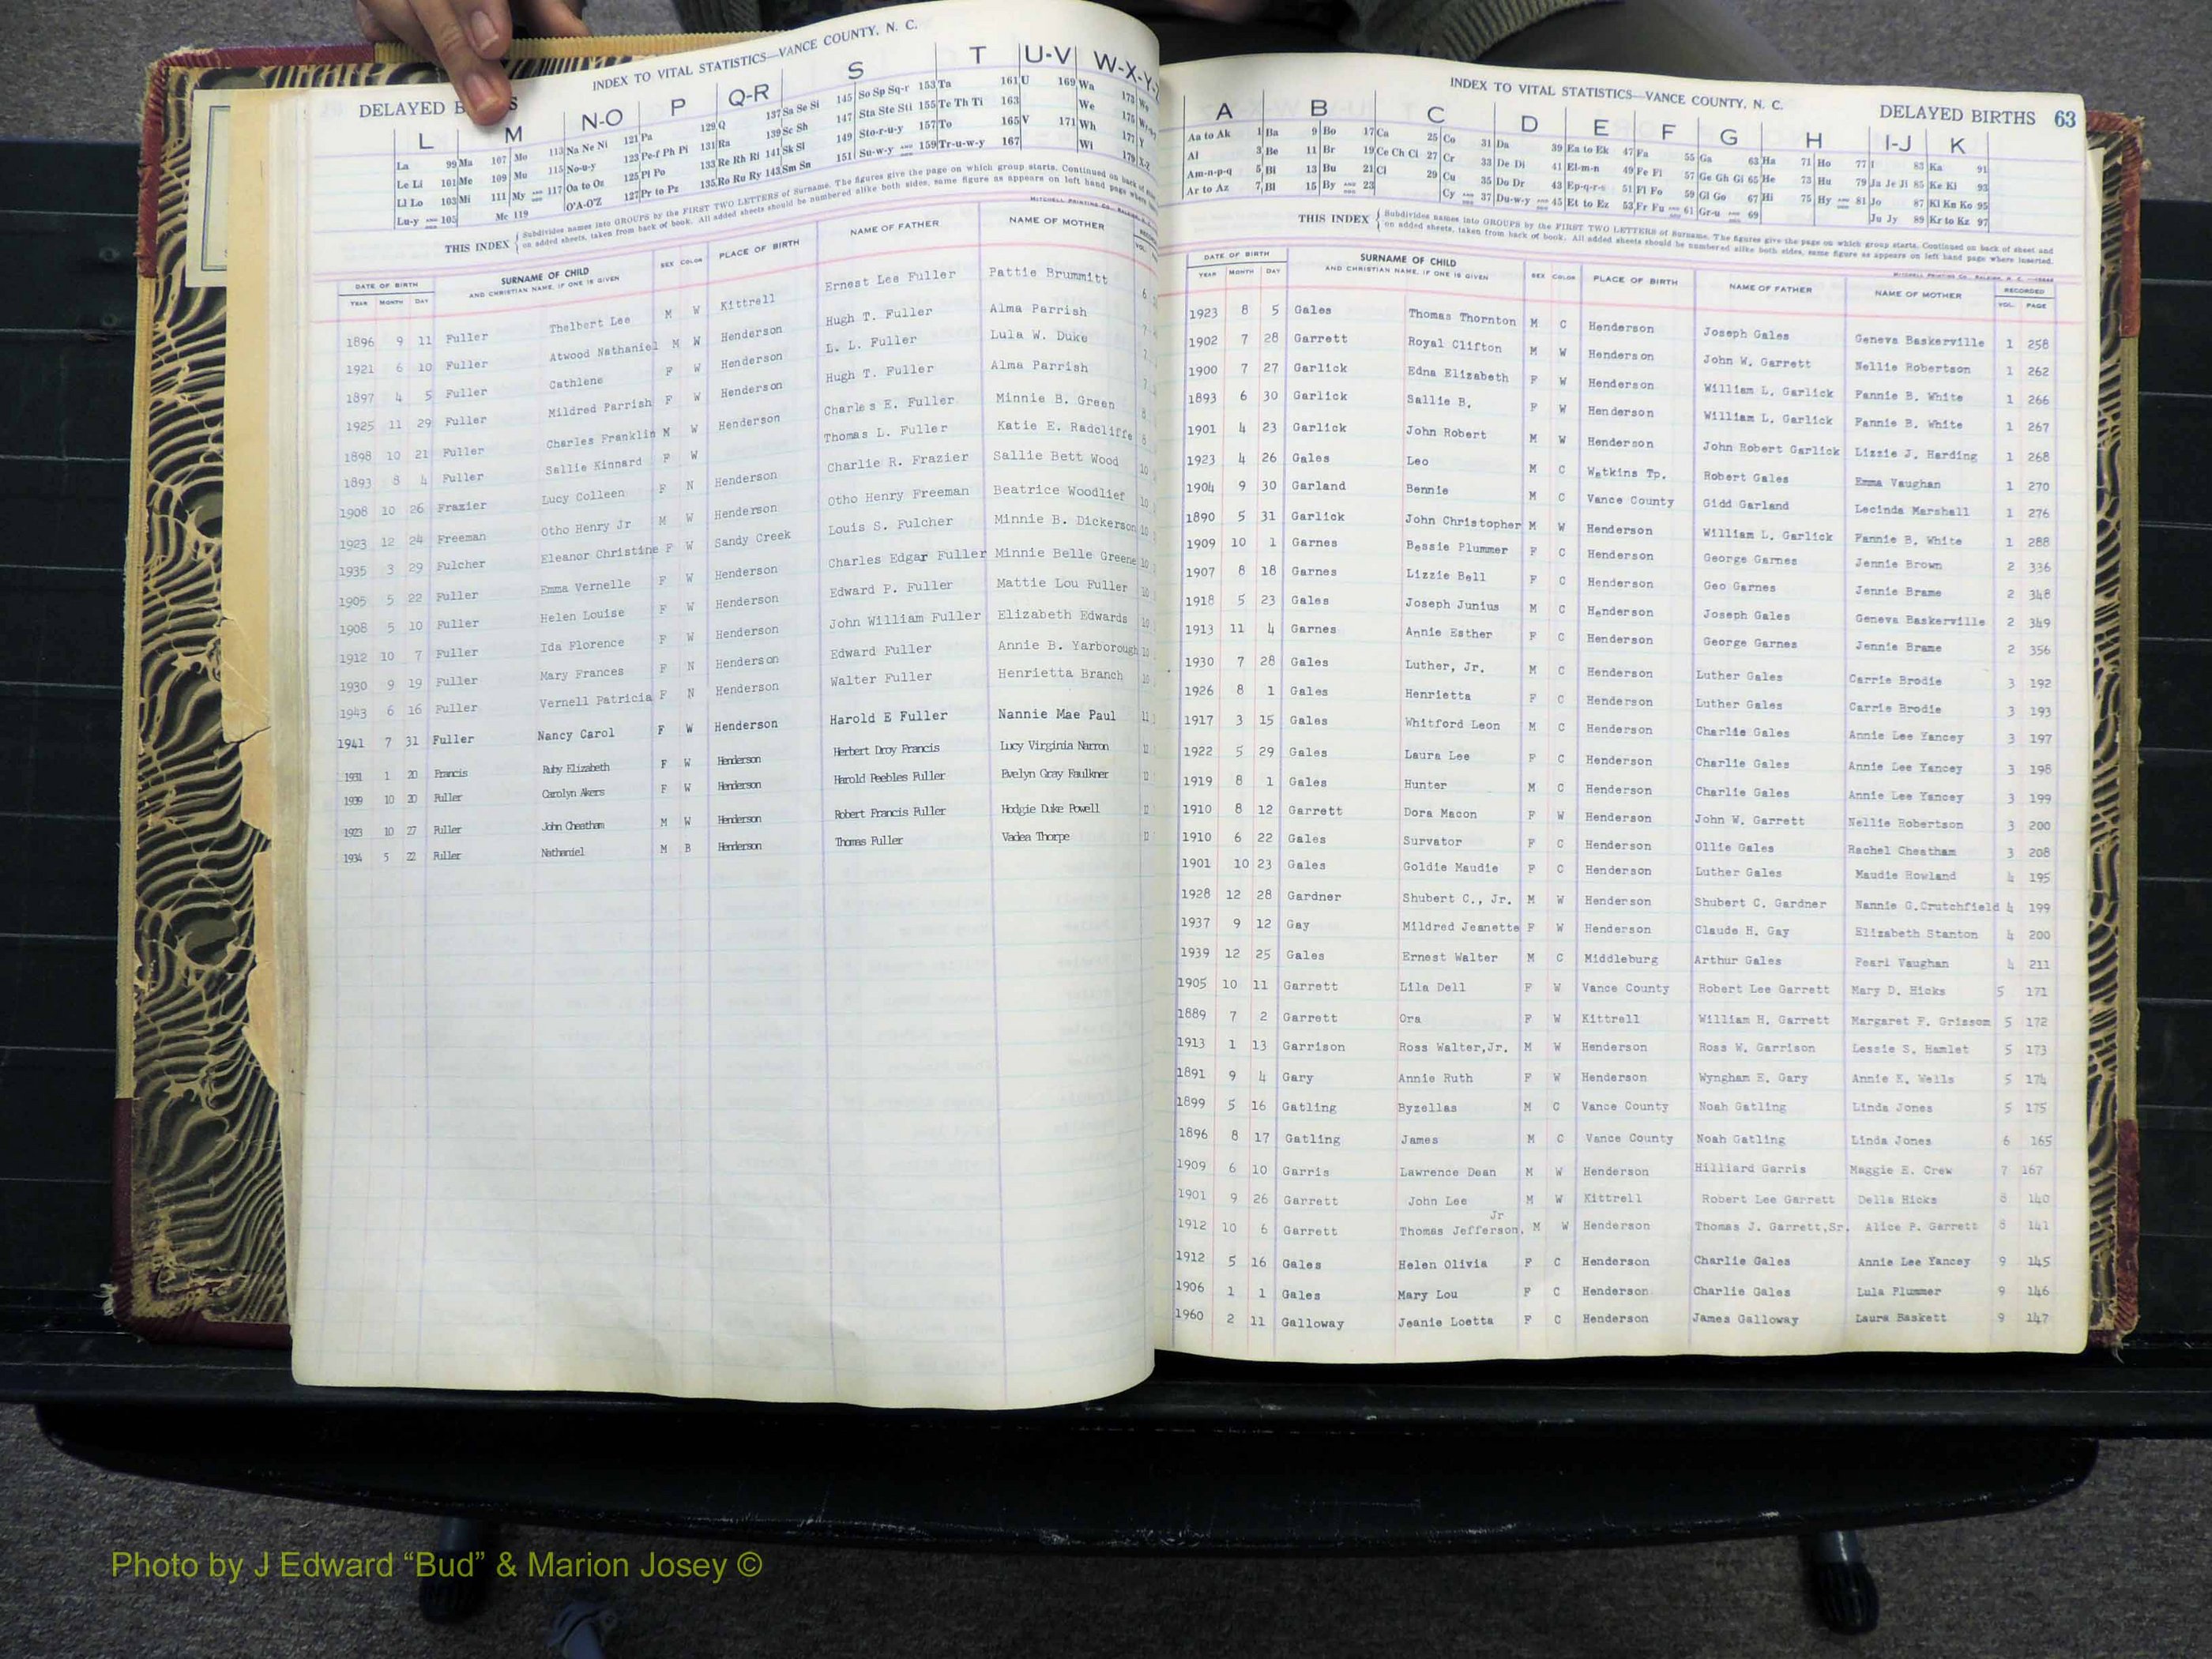 INDEX TO VITAL STATISTICS—VANCE COUNTY, N. C.
DELAYED B S
L M N-O P Q-R S T U-V W-X-Y-Z
La 99 Ma 107 Mo 113 Na Ne Ni 121 Pa 129 Q 137 Sa Se Si 145 So Sp Sq-r 153 Ta 161 U 169 Wa 173
Le Li 101 Me 109 Mu 115 No-u-y 123 Pe-f Ph Pi 131 Ra 139 Sc Sh 147 Sta Ste Sti 155 Te Th Ti 163 We 175
Ll Lo 103 Mi 111 My AND 117 Oa to Oz 125 Pl Po 133 Re Rh Ri 141 Sk Sl 149 Sto-r-u-y 157 To 165 V 171 Wh 177 Y
Lu-y AND 105 Mc 119 O'A-O'Z 127 Pr to Pz 135 Ro Ru Ry 143 Sm Sn 151 Su-w-y AND 159 Tr-u-w-y 167 Wi 179 X-Z
THIS INDEX { Subdivides names into GROUPS by the FIRST TWO LETTERS of Surname. The figures give the page on which group starts. Continued on back of
on added sheets, taken from back of book. All added sheets should be numbered alike both sides, same figure as appears on left hand page where
DATE OF BIRTH SURNAME OF CHILD SEX COLOR PLACE OF BIRTH NAME OF FATHER NAME OF MOTHER
YEAR MONTH DAY AND CHRISTIAN NAME, IF ONE IS GIVEN VOL.
1896 9 11 Fuller Thelbert Lee M W Kittrell Ernest Lee Fuller Pattie Brummitt 6
1921 6 10 Fuller Atwood Nathaniel M W Henderson Hugh T. Fuller Alma Parrish 7
1897 4 5 Fuller Cathlene F W Henderson L. L. Fuller Lula W. Duke 7
1925 11 29 Fuller Mildred Parrish F W Henderson Hugh T. Fuller Alma Parrish 7
1898 10 21 Fuller Charles Franklin M W Henderson Charles E. Fuller Minnie B. Green 8
1893 8 4 Fuller Sallie Kinnard F W Thomas L. Fuller Katie E. Radcliffe 8
1908 10 26 Frazier Lucy Colleen F N Henderson Charlie R. Frazier Sallie Bett Wood 10
1923 12 24 Freeman Otho Henry Jr M W Henderson Otho Henry Freeman Beatrice Woodlief 10
1935 3 29 Fulcher Eleanor Christine F W Sandy Creek Louis S. Fulcher Minnie B. Dickerson 10
1905 5 22 Fuller Emma Vernelle F W Henderson Charles Edgar Fuller Minnie Belle Greene 10
1908 5 10 Fuller Helen Louise F W Henderson Edward P. Fuller Mattie Lou Fuller 10
1912 10 7 Fuller Ida Florence F W Henderson John William Fuller Elizabeth Edwards 10
1930 9 19 Fuller Mary Frances F N Henderson Edward Fuller Annie B. Yarborough 10
1943 6 16 Fuller Vernell Patricia F N Henderson Walter Fuller Henrietta Branch 10
1941 7 31 Fuller Nancy Carol F W Henderson Harold E Fuller Nannie Mae Paul 11
1931 1 20 Francis Ruby Elizabeth F W Henderson Herbert Droy Francis Lucy Virginia Narron 12
1939 10 20 Fuller Carolyn Akers F W Henderson Harold Peebles Fuller Evelyn Gray Faulkner 12
1923 10 27 Fuller John Cheatham M W Henderson Robert Francis Fuller Hodgie Duke Powell 12
1934 5 22 Fuller Nathaniel M B Henderson Thomas Fuller Vadea Thorpe 12
INDEX TO VITAL STATISTICS—VANCE COUNTY, N. C.
DELAYED BIRTHS 63
A B C D E F G H I-J K
Aa to Ak 1 Ba 9 Bo 17 Ca 25 Co 31 Da 39 Ea to Ek 47 Fa 55 Ga 63 Ha 71 Ho 77 I 83 Ka 91
Al 3 Be 11 Br 19 Ce Ch Ci 27 Cr 33 De Di 41 El-m-n 49 Fe Fi 57 Ge Gh Gi 65 He 73 Hu 79 Ja Je Ji 85 Ke Ki 93
Am-n-p-q 5 Bi 13 Bu 21 Cl 29 Cu 35 Do Dr 43 Ep-q-r-s 51 Fl Fo 59 Gl Go 67 Hi 75 Hy AND 81 Jo 87 Kl Kn Ko 95
Ar to Az 7 Bl 15 By AND 23 Cy AND 37 Du-w-y AND 45 Et to Ez 53 Fr Fu AND 61 Gr-u AND 69 Ju Jy 89 Kr to Kz 97
THIS INDEX { Subdivides names into GROUPS by the FIRST TWO LETTERS of Surname. The figures give the page on which group starts. Continued on back of sheet and
on added sheets, taken from back of book. All added sheets should be numbered alike both sides, same figure as appears on left hand page where inserted.
DATE OF BIRTH SURNAME OF CHILD SEX COLOR PLACE OF BIRTH NAME OF FATHER NAME OF MOTHER RECORDED
YEAR MONTH DAY AND CHRISTIAN NAME, IF ONE IS GIVEN VOL. PAGE
1923 8 5 Gales Thomas Thornton M C Henderson Joseph Gales Geneva Baskerville 1 258
1902 7 28 Garrett Royal Clifton M W Henderson John W. Garrett Nellie Robertson 1 262
1900 7 27 Garlick Edna Elizabeth F W Henderson William L. Garlick Fannie B. White 1 266
1893 6 30 Garlick Sallie B. F W Henderson William L. Garlick Fannie B. White 1 267
1901 4 23 Garlick John Robert M W Henderson John Robert Garlick Lizzie J. Harding 1 268
1923 4 26 Gales Leo M C Watkins Tp. Robert Gales Emma Vaughan 1 270
1904 9 30 Garland Bennie M C Vance County Gidd Garland Lecinda Marshall 1 276
1890 5 31 Garlick John Christopher M W Henderson William L. Garlick Fannie B. White 1 288
1909 10 1 Garnes Bessie Plummer F C Henderson George Garnes Jennie Brown 2 336
1907 8 18 Garnes Lizzie Bell F C Henderson Geo Garnes Jennie Brame 2 348
1918 5 23 Gales Joseph Junius M C Henderson Joseph Gales Geneva Baskerville 2 349
1913 11 4 Garnes Annie Esther F C Henderson George Garnes Jennie Brame 2 356
1930 7 28 Gales Luther, Jr. M C Henderson Luther Gales Carrie Brodie 3 192
1926 8 1 Gales Henrietta F C Henderson Luther Gales Carrie Brodie 3 193
1917 3 15 Gales Whitford Leon M C Henderson Charlie Gales Annie Lee Yancey 3 197
1922 5 29 Gales Laura Lee F C Henderson Charlie Gales Annie Lee Yancey 3 198
1919 8 1 Gales Hunter M C Henderson Charlie Gales Annie Lee Yancey 3 199
1910 8 12 Garrett Dora Macon F W Henderson John W. Garrett Nellie Robertson 3 200
1910 6 22 Gales Survator F C Henderson Ollie Gales Rachel Cheatham 3 208
1901 10 23 Gales Goldie Maudie F C Henderson Luther Gales Maudie Rowland 4 195
1928 12 28 Gardner Shubert C., Jr. M W Henderson Shubert C. Gardner Nannie G.Crutchfield 4 199
1937 9 12 Gay Mildred Jeanette F W Henderson Claude H. Gay Elizabeth Stanton 4 200
1939 12 25 Gales Ernest Walter M C Middleburg Arthur Gales Pearl Vaughan 4 211
1905 10 11 Garrett Lila Dell F W Vance County Robert Lee Garrett Mary D. Hicks 5 171
1889 7 2 Garrett Ora F W Kittrell William H. Garrett Margaret F. Grissom 5 172
1913 1 13 Garrison Ross Walter,Jr. M W Henderson Ross W. Garrison Lessie S. Hamlet 5 173
1891 9 4 Gary Annie Ruth F W Henderson Wyngham E. Gary Annie K. Wells 5 174
1899 5 16 Gatling Byzellas M C Vance County Noah Gatling Linda Jones 5 175
1896 8 17 Gatling James M C Vance County Noah Gatling Linda Jones 6 165
1909 6 10 Garris Lawrence Dean M W Henderson Hilliard Garris Maggie E. Crew 7 167
1901 9 26 Garrett John Lee M W Kittrell Robert Lee Garrett Della Hicks 8 140
Jr
1912 10 6 Garrett Thomas Jefferson, M W Henderson Thomas J. Garrett,Sr. Alice P. Garrett 8 141
1912 5 16 Gales Helen Olivia F C Henderson Charlie Gales Annie Lee Yancey 9 145
1906 1 1 Gales Mary Lou F C Henderson Charlie Gales Lula Plummer 9 146
1960 2 11 Galloway Jeanie Loetta F C Henderson James Galloway Laura Baskett 9 147
Photo by J Edward “Bud” & Marion Josey ©